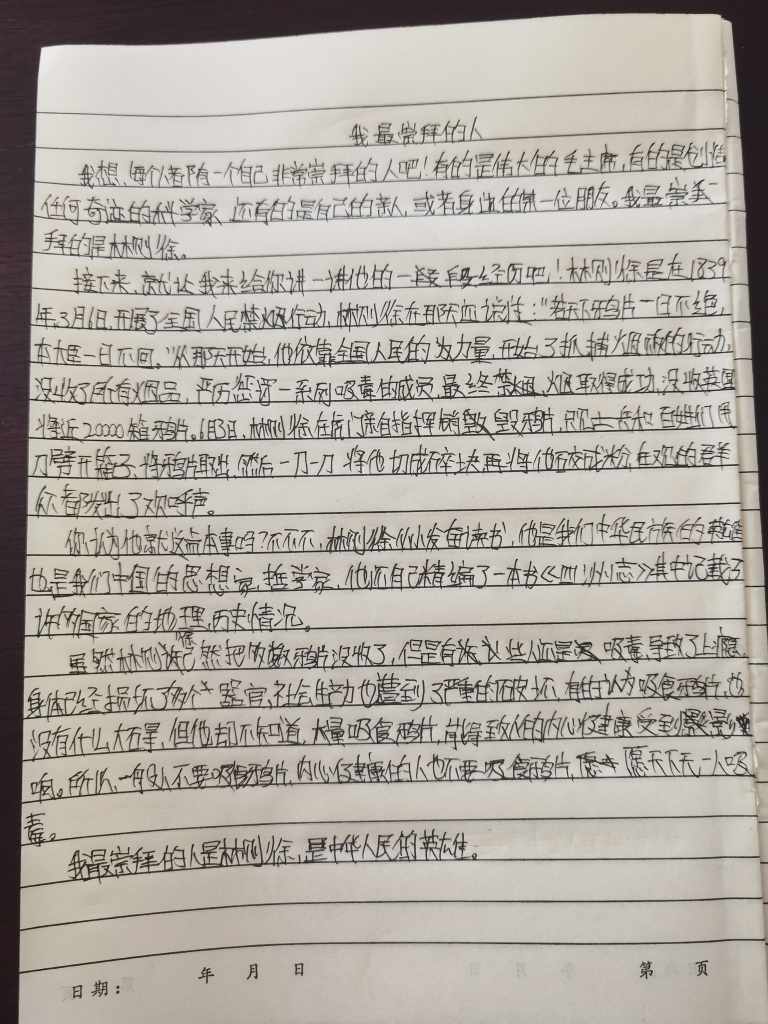 我最崇拜的人
我想,每个人都有一个自己非常崇拜的人吧!有的是伟大的毛主席,有的是创造
任何奇迹的科学家,还有的是自己的亲人,或者身边的某一位朋友。我最崇
拜的是林则徐。
接下来,就让我来给你讲一讲他的一段经历吧!林则徐是在1839
年3月6日,开展了全国人民禁烟行动,林则徐在那天立誓:"若天下鸦片一日不绝,
本大臣一日不回。"从那天开始,他依靠全国人民的力量,开始了抓捕烟贩的行动,
没收了所有烟品,严厉惩罚一系列吸毒的成员,最终禁烟取得成功,没收英国
将近20000箱鸦片。6月3日,林则徐在虎门亲自指挥销毁鸦片,只见士兵和百姓们用
刀劈开箱子,将鸦片取出,然后一刀一刀将他切成碎块再将他砸成粉,在观的群
众都发出了欢呼声。
你认为他就这点本事吗?不不不,林则徐从小发奋读书,他是我们中华民族的
也是我们中国的思想家,哲学家,他还自己精编了一本书《四洲志》其中记载了
许多国家的地理,历史情况。
虽然林则徐然把多数鸦片没收了,但是有些人还是吸毒,导致了上瘾,
身体已经损坏了多个器官,社会生产力也遭到了严重的破坏,有的认为吸食鸦片,也
没有什么大不了,但他却不知道,大量吸食鸦片,能导致人的内心健康受到影
响。所以,一般人不要吸食鸦片,内心健康的人也不要吸食鸦片,愿天下无一人吸
毒。
我最崇拜的人是林则徐,是中华人民的英雄。
日期: 年 月 日 第 页